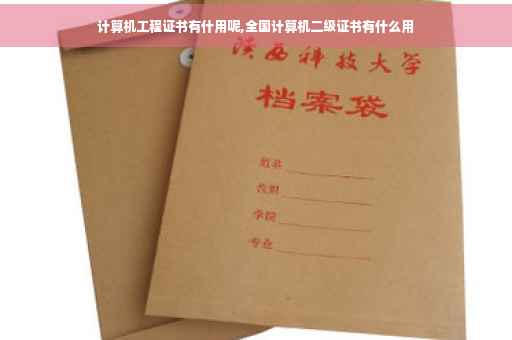 计算机工程证书有什用呢,全国计算机二级证书有什么用
陕西科技大学
档案袋
姓名
学院
专业